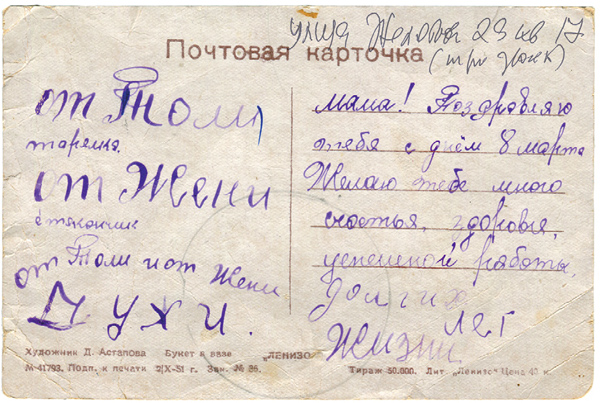 улица Желябова 23 кв 17
(три звонк)
Почтовая карточка
от Толи
тарелка.
от Жени
стаканчик
от Толи и от Жени
Духи.
мама! Поздравляю
тебя с днём 8 марта
Желаю тебе много
счастья, здоровья,
успешной работы,
долгих
лет
жизни
Художник Д. Астапова Букет в вазе „ЛЕНИЗО“
М-41793. Подп. к печати 2|X-51 г. Зак. № 36. Тираж 50.000. Лит. „Ленизо“ Цена 40 к.